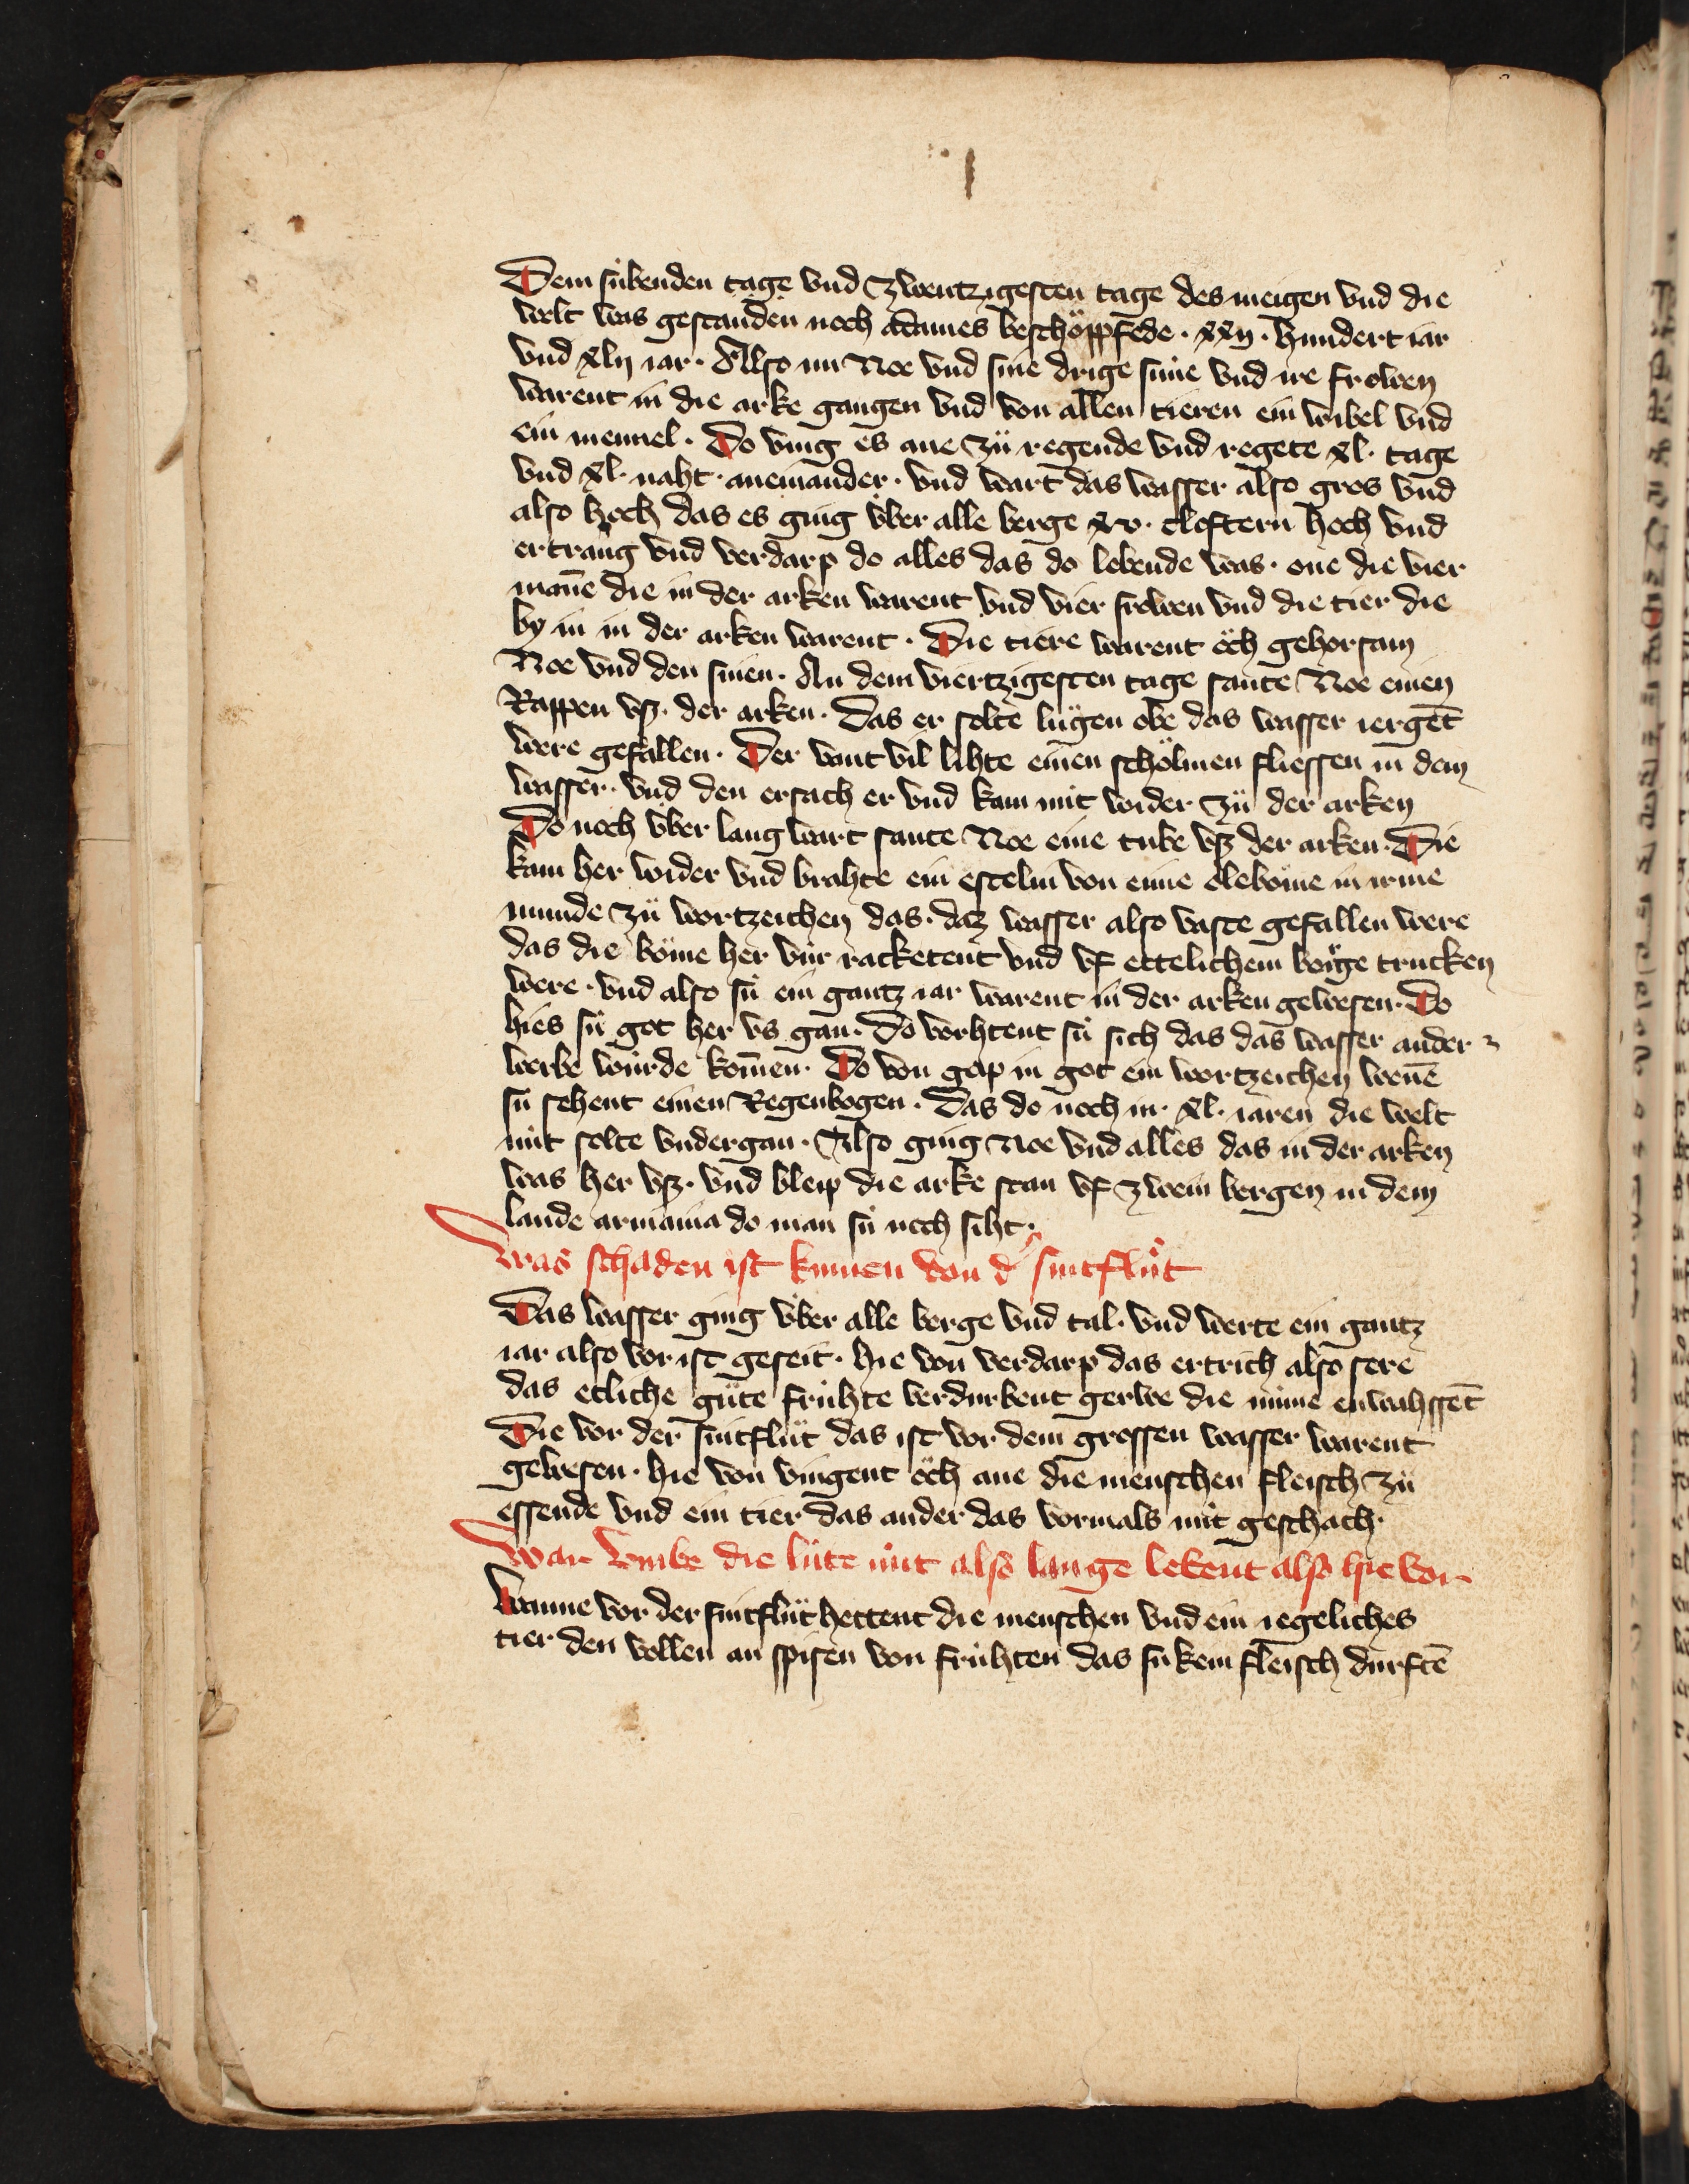 Dem súbenden tage vnd zwentzigesten tage des meigen vnd die
welt was gestanden noch adames beschöppfede · xxij · hundert iar
vnd xlij iar · Also nu Noe vnd sine drige súne vnd ire frowen
warent in die arke gangen vnd von allen tieren ein wibel vnd
ein mennel · Do ving es ane zů regende vnd regete xl · tage
vnd xl · naht · aneinander · vnd wart das wasser also gros vnd
also hoch das es ging v́ber alle berge xv · cloftern hoch vnd
ertrang vnd verdarp do alles das do lebende was · one die vier
man̄e die in der arken warent vnd vier frowen vnd die tier die
by in in der arken warent · Die tiere warent öch gehorsam
Noe vnd den sinen · An dem viertzigesten tage sante Noe einen
Rappen vsz · der arken · Das er solte lůgen obe das wasser iergēt
were gefallen · Der vant vil lihte einen schölmen fliessen in dem
wasser · vnd den ersach er vnd kam nút wider zů der arken
Do noch v́ber lang wart sante Noe eine tube vsz der arken · Die
kam her wider vnd brahte ein estelin von eime öleböme in irme
munde zů wortzeichen das · daz wasser also vaste gefallen were
das die böme her vúr racketent vnd vf ettelichem berge trucken
were · vnd also sú ein gantz iar warent in der arken gewesen · Do
hies sú got her vs gan · Do vorhtent sú sich das das wasser ander
werbe wúrde kom̄en · Do von gap in got ein wortzeichen wen̄e
sú sehent einen Regenbogen · Das do noch in · xl · iaren die welt
nút solte vndergan · Also ging Noe vnd alles das in der arken
was her vsz · vnd bleip die arke stan vf zwein bergen in dem
lande armania do man sú noch siht ·
Was schaden ist kumen von d' sintflůt
Das wasser ging v́ber alle berge vnd tal · vnd werte ein gantz
iar also vor ist geseit · hie von verdarp das ertrich also sere
das etliche gůte frúhte verdurbent gerwe die nim̄e enwahssēt
Die vor der sintflůt das ist vor dem grossen wasser warent
gewesen · hie von vingent öch ane die menschen fleisch zů
essende vnd ein tier das ander das vormals nút geschach ·
War vmbe die lúte nút also lange lebent also hie vor
Wanne vor der sintflůt hettent die menschen vnd ein iegeliches
tier den vollen an spisen von frúhten das sú kein fleisch durftē